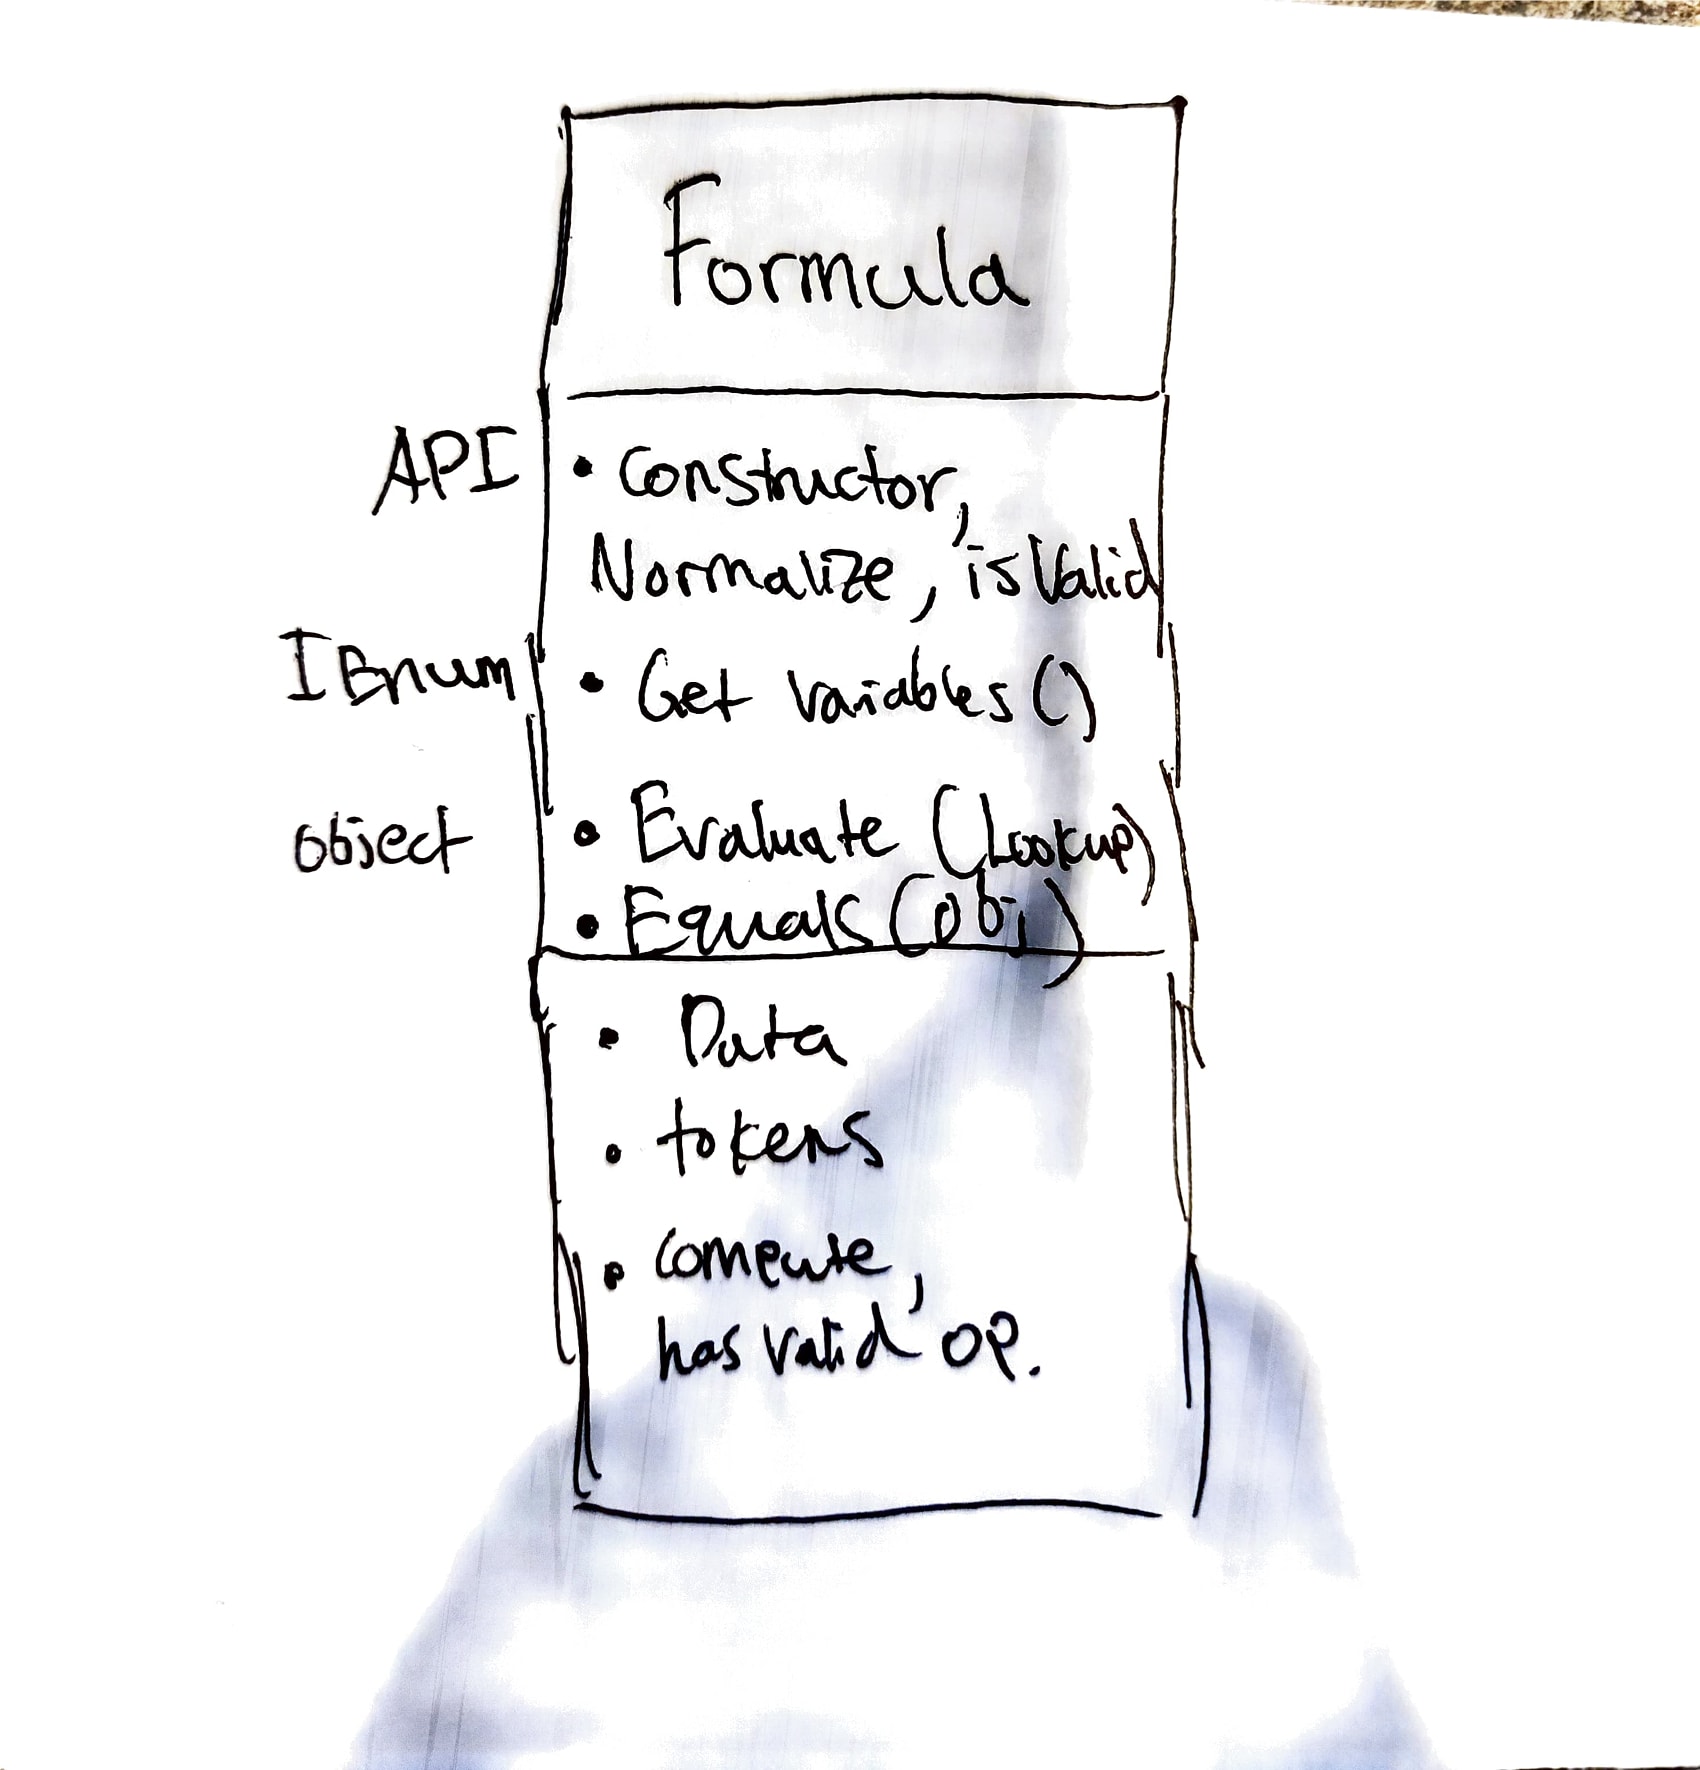 Formula
API
• Constructor,
Normalize, isValid
IEnum
• Get variables()
object
• Evaluate (Lookup)
• Equals (obj)
• Data
• tokens
• compute,
has valid op.